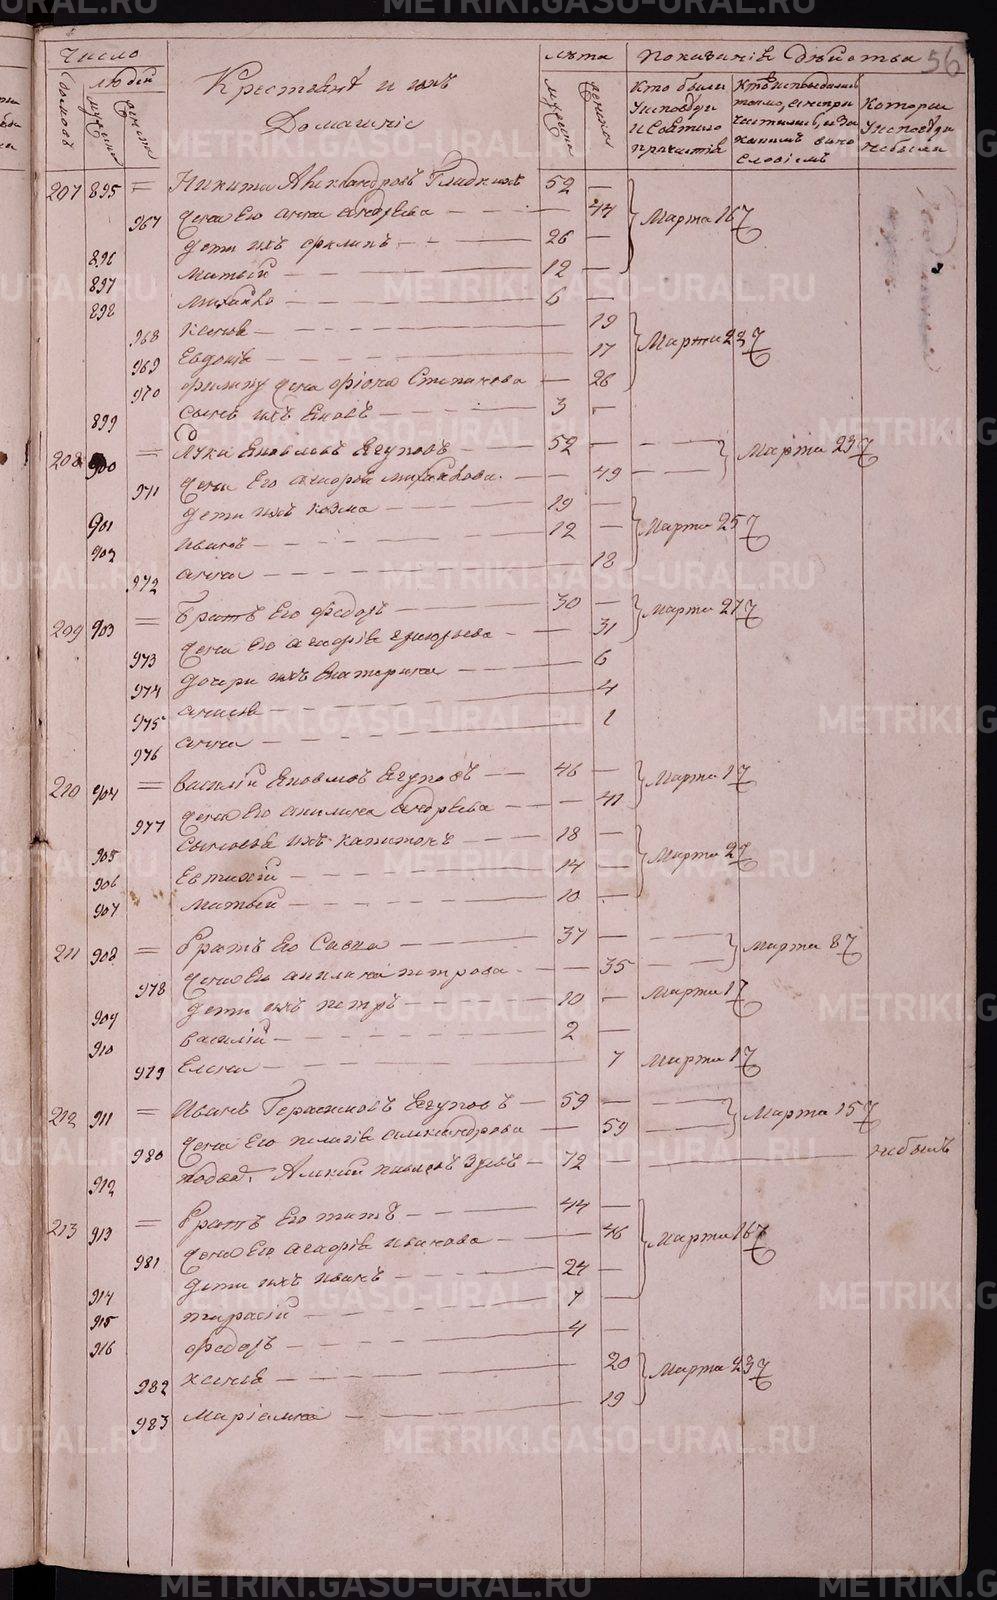 56
Число
людей
домовъ
мужеска
женска
Крестьянѣ и ихъ
Домашніе
лѣта
мужеска
женска
показаніе дѣйства
Кто были у исповѣди и Святаго причастія
Которые у исповѣди небыли
207 895 = Никита Александровъ Гладкихъ 52 —
967 жена Его Анна Андрѣева — 44 Марта 16
896 дети ихъ Филипъ — 26 —
897 Матвѣй — 12 —
898 Михайло — 6 —
968 Ксенія — 19
969 Евдокія — 17 Марта 23
970 Филипу жена Фіона Степанова — 26
899 сынъ ихъ Яковъ — 3 —
208 900 = Лука Яковлевъ Ягуповъ — 52 — Марта 23
971 жена Его Агафья Михайлова — 49
901 дети ихъ Козма — 19 —
902 Иванъ — 12 — Марта 25
972 Анна — 18
209 903 = Братъ Его Федоръ — 30 — Марта 27
973 жена Его Агафія Григорьева — 31
974 дочери ихъ Екатерина — 6
975 Анисья — 4
976 Анна — 1
210 904 = Василій Яковлевъ Ягуповъ — 46 — Марта 1
977 жена Его Акилина Андрѣева — 41
905 Сыновья ихъ Капитонъ — 18 —
906 Евтихій — 14 — Марта 2
907 Матвѣй — 10 —
211 908 = Братъ Его Савва — 37 — Марта 8
978 жена Его Акилина Петрова — 35
909 дети ихъ Петръ — 10 — Марта 1
910 Василій — 2 —
979 Елена — 7 Марта 1
212 911 = Иванъ Герасимовъ Ягуповъ — 59 — Марта 15
980 жена Его Пелагія Александрова — 59
912 Алексѣй — 72 — небылъ
213 913 = Братъ Его Титъ — 44 —
981 жена Его Агафія Иванова — 46 Марта 16
914 дети ихъ Иванъ — 24 —
915 Тарасій — 7 —
916 Федоръ — 4 —
982 Ксенія — 20 Марта 23
983 Маріамна — 19
METRIKI.GASO-URAL.RU